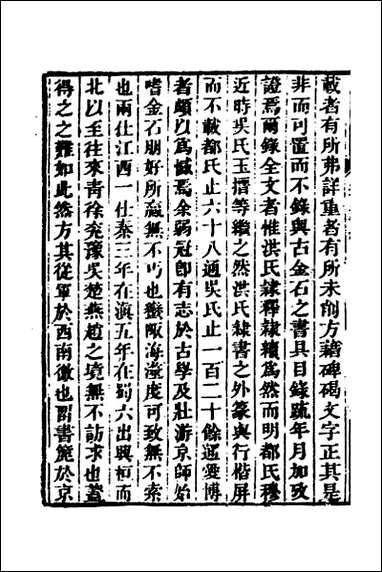 載者有所弗詳重者有所未削方藉碑碣文字正其是
非而可置而不錄與古金石之書具目錄䟽年月加攷
證焉爾錄全文者惟洪氏隸釋隸續爲然而明都氏穆
近時吳氏玉搢等繼之然洪氏隸書之外篆與行楷屏
而不載都氏止六十八通吳氏止一百二十餘通愛博
者頗以爲憾焉余弱冠卽有志於古學及壯游京師始
嗜金石朋好所贏無不丐也蠻陬海澨度可致無不索
也兩仕江西一仕秦三年在滇五年在蜀六出興桓而
北以至往來青徐兖豫吳楚燕趙之境無不訪求也蓋
得之之難如此然方其從軍於西南徼也留書簏於京